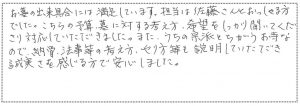 お墓の出来具合には満足しています。担当は佐藤さんとおっしゃる方
でした。こちらの予算、墓に対する考え方、希望をしっかり聞いてくださ
り対応していただきました。また、うちの宗派とちがうお寺な
ので、納骨、法事等の考え方、やり方等も説明していただき
る誠実さを感じる方で安心しました。